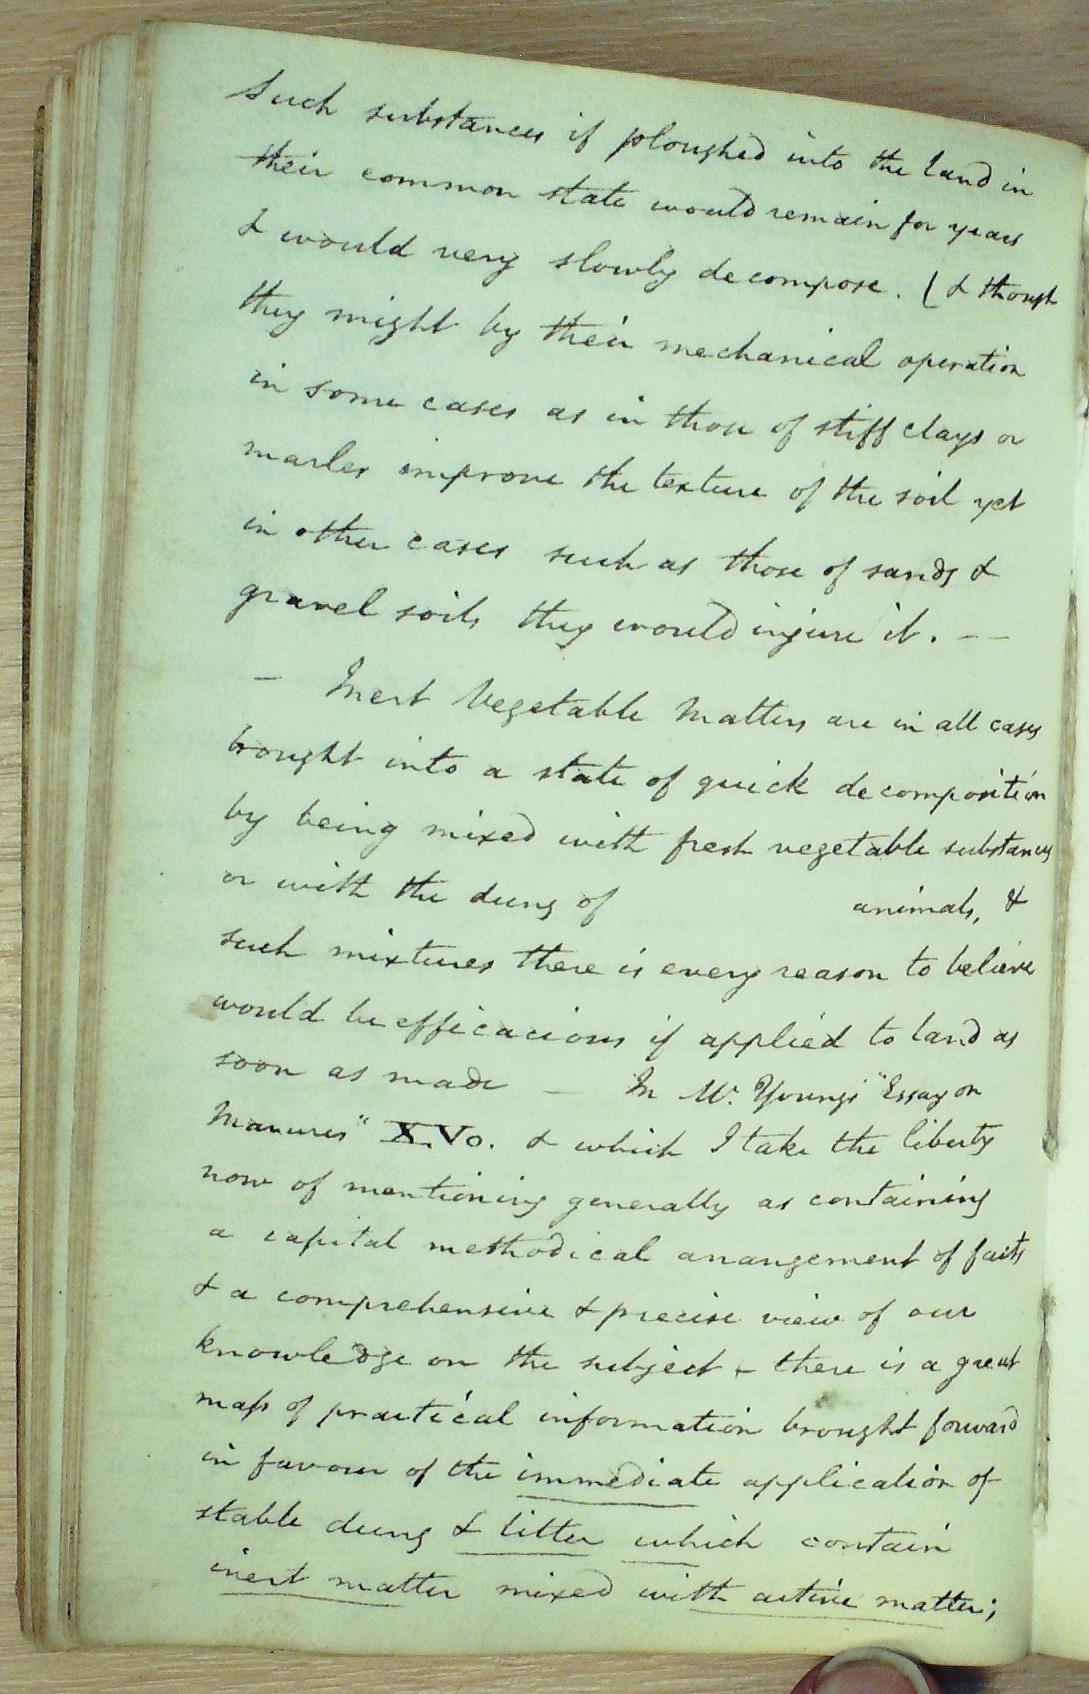 Such substances if ploughed into the land in
their common state would remain for years
& would very slowly decompose. (& though
they might by their mechanical operation
in some cases as in those of stiff clays or
marles improve the texture of the soil yet
in other cases such as those of sands &
gravel soils they would injure it. --
- Inert Vegetable Matters are in all cases
brought into a state of quick decomposition
by being mixed with fresh vegetable substances
or with the dung of animals, &
such mixtures there is every reason to believe
would be efficacious if applied to land as
soon as made - In Mr. Youngs "Essay on
Manures" X.Vo. & which I take the liberty
now of mentioning generally as containing
a capital methodical arrangement of facts
& a comprehensive & precise view of our
knowledge on the subject - there is a great
mass of practical information brought forward
in favour of the immediate application of
stable dung & litter which contain
inert matter mixed with active matter;